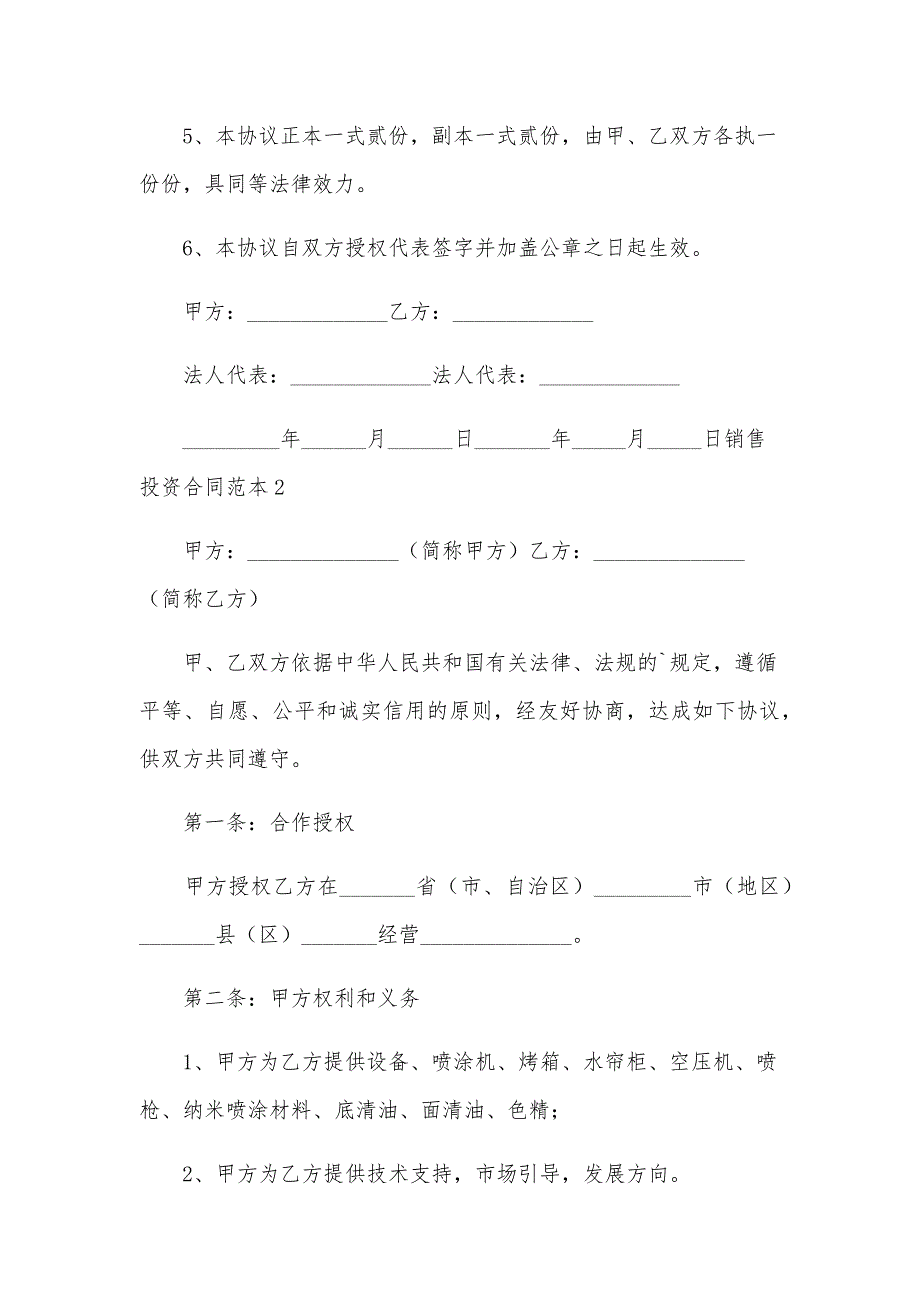 5、本协议正本一式贰份，副本一式贰份，由甲、乙双方各执一
份份，具同等法律效力。
6、本协议自双方授权代表签字并加盖公章之日起生效。
甲方：_____________乙方：_____________
法人代表：_____________法人代表：_____________
_________年______月______日_______年_____月_____日销售
投资合同范本2
甲方：______________（简称甲方）乙方：______________
（简称乙方）
甲、乙双方依据中华人民共和国有关法律、法规的`规定，遵循
平等、自愿、公平和诚实信用的原则，经友好协商，达成如下协议，
供双方共同遵守。
第一条：合作授权
甲方授权乙方在_______省（市、自治区）_________市（地区）
_______县（区）_______经营______________。
第二条：甲方权利和义务
1、甲方为乙方提供设备、喷涂机、烤箱、水帘柜、空压机、喷
枪、纳米喷涂材料、底清油、面清油、色精；
2、甲方为乙方提供技术支持，市场引导，发展方向。